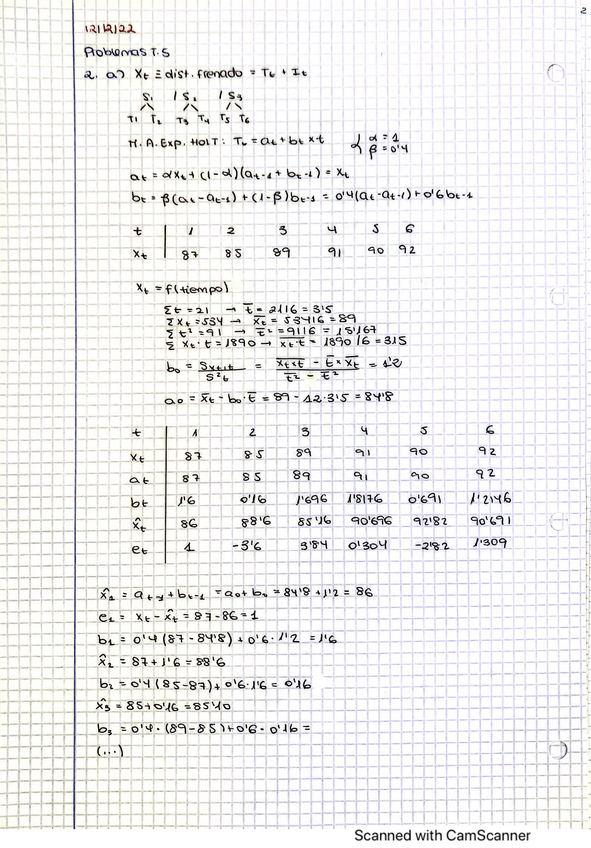 2
12/12/22
Problemas T.5
2. a) Xt ≡ dist. frenado = Tt + It
S1 / S2 / S3
T1 T2 T3 T4 T5 T6
M. A. Exp. HOLT: Tt = at + bt × t { α = 1
β = 0'4
at = αXt + (1-α)(at-1 + bt-1) = Xt
bt = β(at - at-1) + (1-β)bt-1 = 0'4(at - at-1) + 0'6bt-1
t | 1 2 3 4 5 6
Xt | 87 85 89 91 90 92
Xt = f(tiempo)
Σt = 21 → t̄ = 21/6 = 3'5
ΣXt = 534 → X̄t = 534/6 = 89
Σt² = 91 → t̄² = 91/6 = 15'167
ΣXt·t = 1890 → Xt·t = 1890/6 = 315
b0 = SXt,t / S²t = (Xt×t - t̄ × X̄t) / (t² - t̄²) = 1'2
a0 = X̄t - b0·t̄ = 89 - 1.2·3'5 = 84'8
t | 1 2 3 4 5 6
Xt | 87 85 89 91 90 92
at | 87 85 89 91 90 92
bt | 1'6 0'16 1'696 1'8176 0'691 1'2146
X̂t | 86 88'6 85'16 90'696 92'82 90'691
et | 1 -3'6 3'84 0'304 -2'82 1'309
X̂1 = at-1 + bt-1 = a0 + b0 = 84'8 + 1'2 = 86
e1 = Xt - X̂t = 87 - 86 = 1
b1 = 0'4(87 - 84'8) + 0'6·1'2 = 1'6
X̂2 = 87 + 1'6 = 88'6
b2 = 0'4(85-87) + 0'6·1'6 = 0'16
X̂3 = 85 + 0'16 = 85'16
b3 = 0'4·(89-85) + 0'6·0'16 =
(...)
Scanned with CamScanner